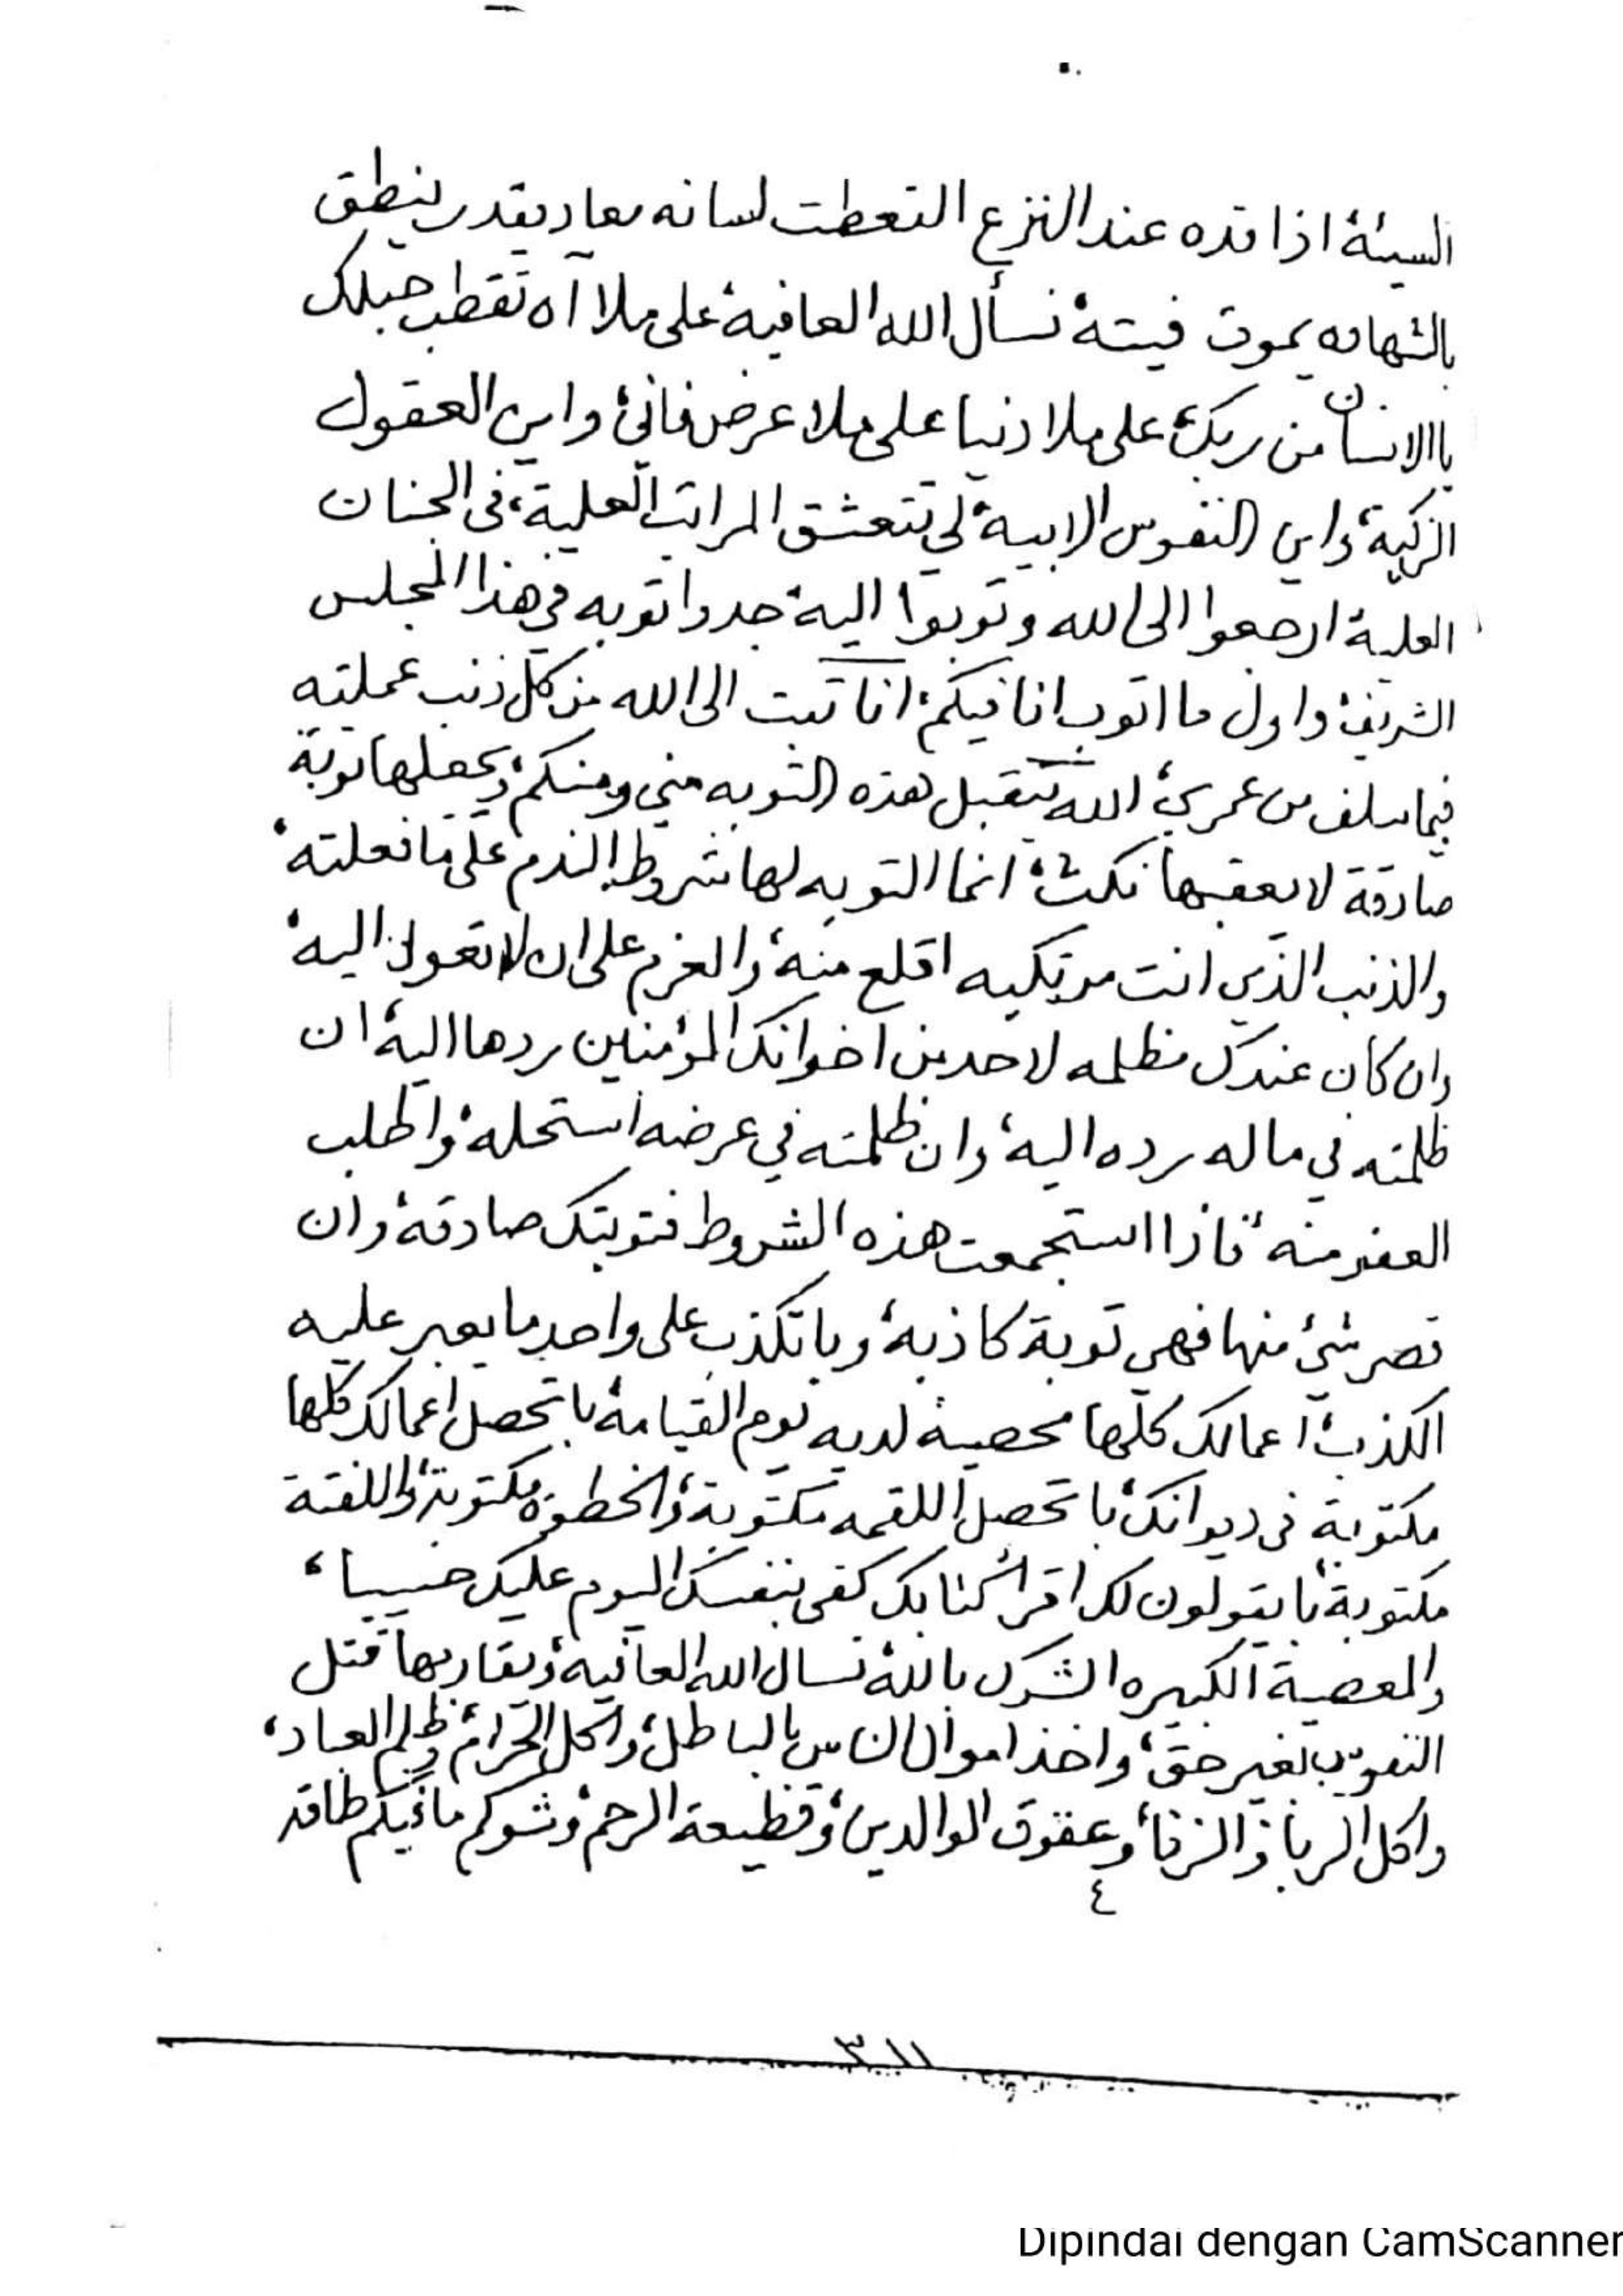 السيئة اذا قده عند النزع التعطت لسانه معاد يقدر ينطق
بالشهاده يموت فيته نسأل الله العافية على ملا آه تقطب حبلك
يا الانسان من ربك على ملا دنيا على ملا عرض فانئ واين العقول
الزكية واين النفوس الابية لي تتعشق المراتب العلية في الجنان
العلية ارجعوا الى الله وتوبوا اليه جددوا توبه في هذا المجلس
الشريف واول ما اتوب انا فيكم انا تبت الى الله من كل ذنب عملته
فيما سلف من عمري الله يتقبل هذه التوبه مني ومنكم ويجعلها توبة
صادقة لا يعقبها نكث انما التوبه لها شروط الندم على ما فعلته
والذنب الذي انت مرتكبه اقلع منه والعزم على ان لا تعود اليه
وان كان عندك مظلمه لاحد من اخوانك المؤمنين ردها اليه ان
ظلمته في ماله رده اليه وان ظلمته في عرضه استحله واطلب
العفو منه فاذا استجمعت هذه الشروط فتوبتك صادقة وان
قصر شئ منها فهي توبة كاذبة وباتكذب على واحد ما يعبر عليه
الكذب اعمالك كلها محصية لديه يوم القيامة با تحصل اعمالك كلها
مكتوبة في ديوانك با تحصل اللقمه مكتوبة والخطوة مكتوبة واللفتة
مكتوبة با يقولون لك اقرأ كتابك كفى بنفسك اليوم عليك حسيبا
والمعصية الكبيره الشرك بالله نسال الله العافية ويقاربها قتل
النفوس بغير حق واخذ اموال الناس بالباطل واكل الحرام وظلم العباد
واكل الربا والزنا وعقوق الوالدين وقطيعة الرحم وشوكم ما فيكم طاقه
٤
٣١١
Dipindai dengan CamScanner